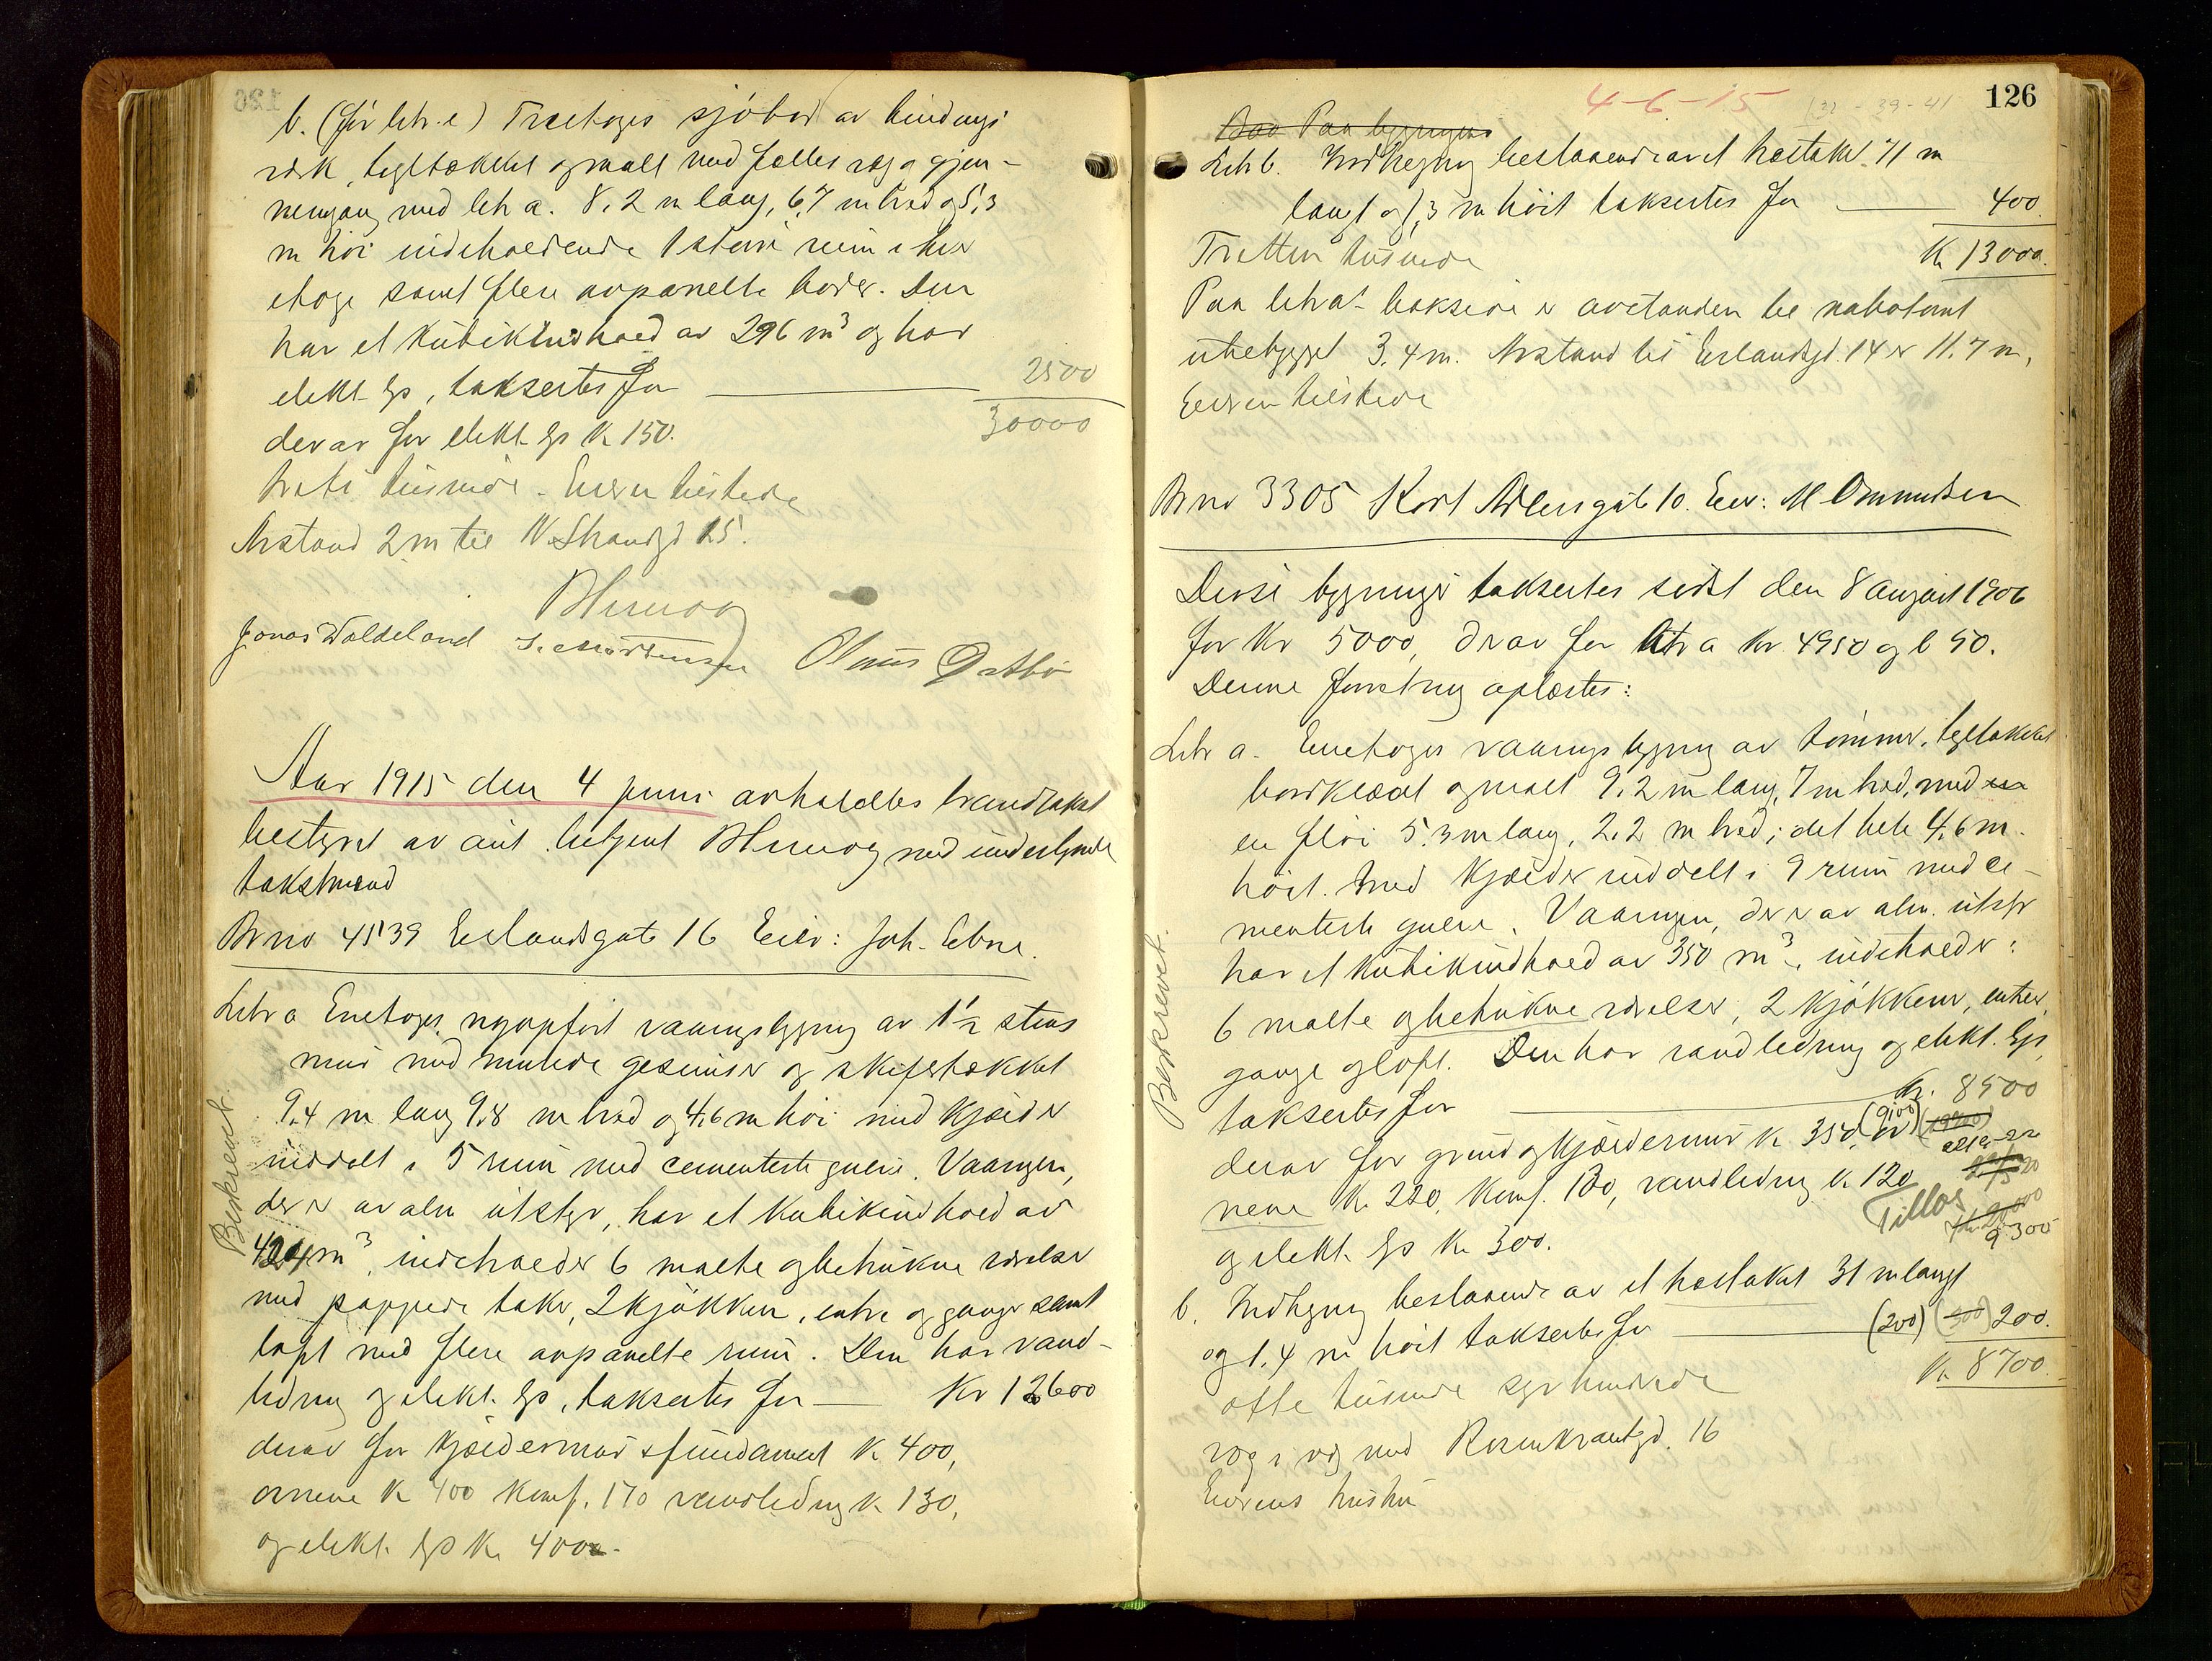 b. (før litr. c) Treetages sjøbod av bindings
verk, tegltækket og malt med fælles væg og gjen-
nemgang med litr a. 8,2 m lang, 6,7 m bred og 5,3
m høi indeholdende 1 stort rum i hver
etage samt flere avpanelte boder. Den
har et kubikindhold av 296 m³ og har
elekt. lys, taksertes for 2500
30000
derav for elekt. lys Kr 150.
Tretti tusinde - Eieren tilstede
Avstand 2 m til N. Strandgd 25.
Jonas Waldeland
Aar 1915 den 4 juni avholdtes brandtakst
bestyret av aut. med undertegnede
takstmænd
Br no 4539 Erlandsgate 16 Eier: Joh. Ebne.
Litr a Enetages, nyopført vaaningsbygning av 1½ stens
mur med murede gesimser og skifertækket
9.4 m lang 9.8 m bred og 4,6 m høi med kjælder
inddelt i 5 rum med cementerte gulve. Vaaningen,
der er av alm utstyr, har et kubikindhold av
424 m³, indeholder 6 malte og betrukne værelser
med pappede take, 2 kjøkken, entre og gange samt
loft med flere avpanelte rum. Den har vand-
ledning og elekt. lys, taksertes for Kr 12600
derav for kjældermur & fundament Kr 400,
ovnene Kr 400 komf. 170 vandledning Kr 130,
og elekt. lys Kr 400
Beskrevet.
126
4-6-15
Paa bygningens
Litr b. Indhegning bestaaende av et hæstaket 71 m
langt og 1,3 m høit taksertes for 400.
Tretten tusinde Kr 13000.
Paa litr a's bakside er avstanden til nabotomt
ubebygget 3,4 m. Avstand til Erlandsgd. 14 er 11.7 m,
Eieren tilstede
Br no 3305 Kort Adlersgate 10. Eier: M Ommundsen
Disse bygninger taksertes sidst den 8 august 1906
for Kr 5000, derav for litr a Kr 4950 og b 50.
Denne forretning oplæstes:
Litr a. Enetages vaaningsbygning av tømmer, tegltækket
bordklædt og malt 9.2 m lang, 7 m bred, med
en fløi 5.3 m lang, 2.2 m bred; det hele 4.6 m
høit. Med kjælder inddelt i 9 rum med ce-
menterte gulve. Vaaningen, der er av alm. utstyr
har et kubikindhold av 350 m³, indeholder:
6 malte og betrukne værelser, 2 kjøkkener, entre,
gange og loft. Den har vandledning og elekt. lys,
taksertes for Kr. 8500
derav for grund og kjældermur Kr 350, ov (9100)
nene Kr. 220, komf. 130, vandledning Kr 120
og elekt. lys Kr 300.
Tillæg
9300
b. Indhegning bestaaende av et hæstaket 31 m langt
og 1.4 m høit taksertes for (200) (300) 200.
Kr 8700.
otte tusinde syv hundrede
væg i væg med Rosenkrantzgd. 16
Eierens hustru
Beskrevet.